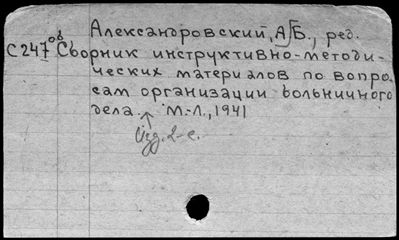 Александровский, А.Б., ред.
С247об Сборник инструктивно-методи-
ческих материалов по вопро-
сам организации больничного
дела. М.-Л., 1941
Изд. 2-е.